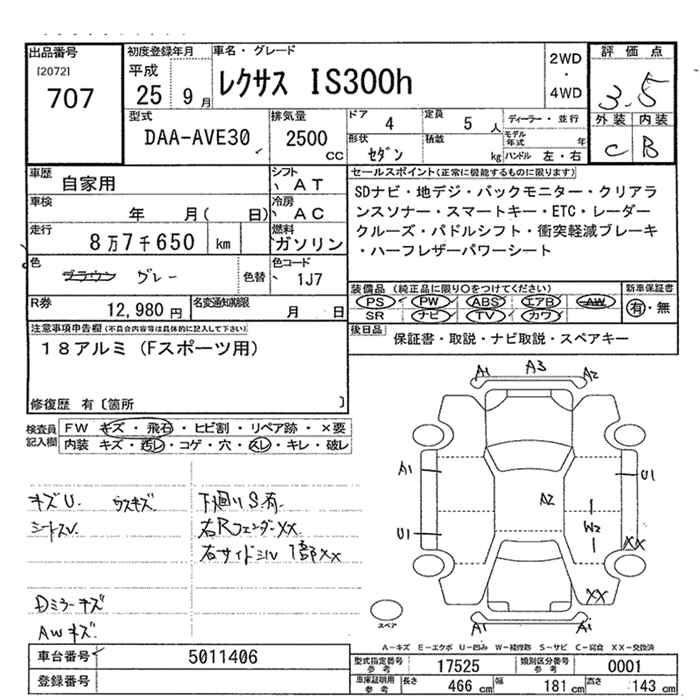 出品番号
[2072]
707
初度登録年月
平成
25 9月
車名・グレード
レクサス IS300h
2WD
・
4WD
評価点
3.5
外装 内装
C B
型式
DAA-AVE30
排気量
2500 cc
ドア 4
定員 5 人
ディーラー・並行
形状 セダン
積載 kg
モデル年式 年
ハンドル 左・右
車歴 自家用
シフト AT
車検 年 月( 日)
冷房 AC
走行 8万7千650 km
燃料 ガソリン
色 ブラウン グレー
色替
色コード 1J7
R券 12,980円
名変通知期限 月 日
セールスポイント(正常に機能するものに限ります)
SDナビ・地デジ・バックモニター・クリアラ
ンスソナー・スマートキー・ETC・レーダー
クルーズ・パドルシフト・衝突軽減ブレーキ
・ハーフレザーパワーシート
装備品 (純正品に限り○をつけてください)
PS PW ABS エアB AW
SR ナビ TV カワ
新車保証書
有・無
後日品 保証書・取説・ナビ取説・スペアキー
注意事項申告欄(不具合内容等は具体的に記入して下さい)
18アルミ(Fスポーツ用)
修復歴 有〔箇所 〕
検査員記入欄
FW キズ・飛石・ヒビ割・リペア跡・×要
内装 キズ・汚レ・コゲ・穴・スレ・キレ・破レ
キズU. ウスキズ
シートスレ
下廻りS有.
右Rフェンダー××
右サイドシル1部××
Dミラーキズ
AWキズ
A1 A3 A2
A1 U1
A2
U1 W2
XX
XX
A1 A1
スペア
A-キズ E-エクボ U-凹み W-補修跡 S-サビ C-腐食 XX-交換済
車台番号 5011406
登録番号
型式指定番号 参考 17525
類別区分番号 参考 0001
車庫証明用 参考 長さ 466 cm 幅 181 cm 高さ 143 cm